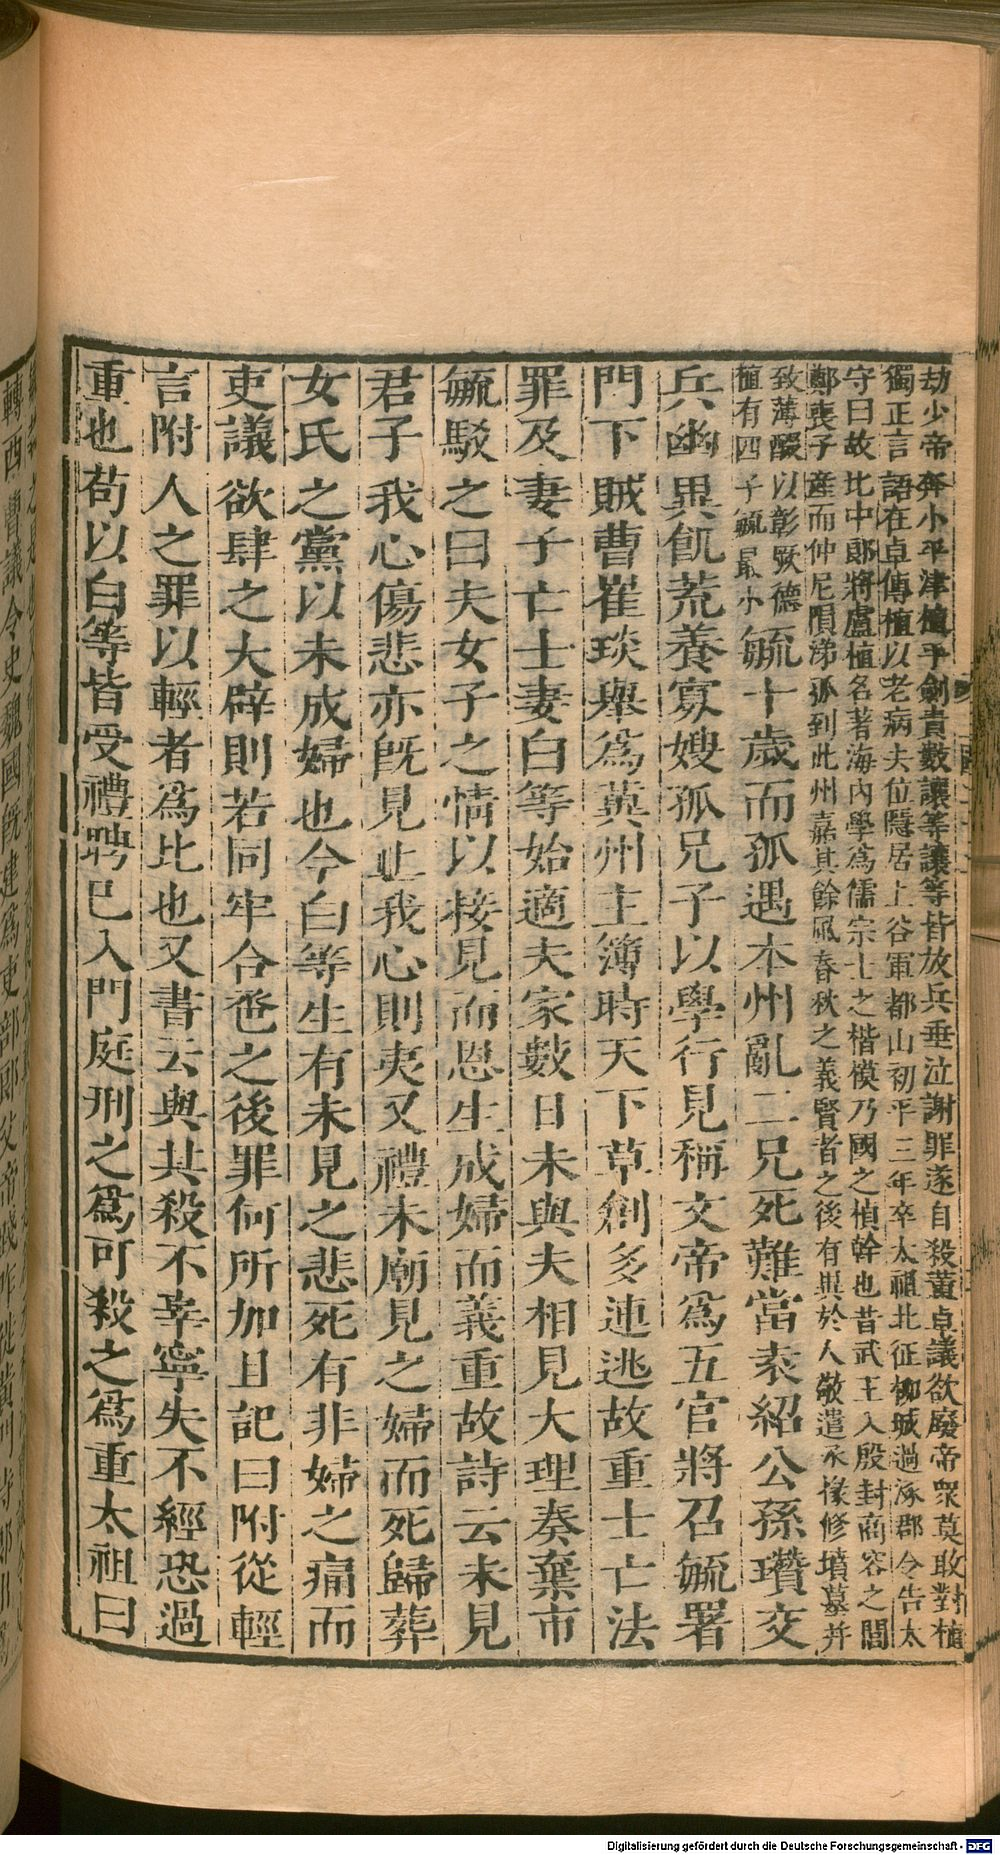 劫少帝奔小平津植手劍責數讓等讓等皆放兵垂泣謝罪遂自殺董卓議欲廢帝衆莫敢對植
獨正言語在卓傳植以老病去位隱居上谷軍都山初平三年卒太祖北征柳城過涿郡令告太
守曰故北中郎將盧植名著海內學爲儒宗士之楷模乃國之楨幹也昔武王入殷封商容之閭
鄭喪子產而仲尼隕涕孤到此州嘉其餘風春秋之義賢者之後有異於人敬遣丞掾修墳墓并
致薄醊以彰厥德
植有四子毓最小
毓十歲而孤遇本州亂二兄死難當袁紹公孫瓚交
兵幽冀飢荒養寡嫂孤兄子以學行見稱文帝爲五官將召毓署
門下賊曹崔琰舉爲冀州主簿時天下草創多逋逃故重士亡法
罪及妻子亡士妻白等始適夫家數日未與夫相見大理奏棄市
毓駁之曰夫女子之情以接見而恩生成婦而義重故詩云未見
君子我心傷悲亦旣見止我心則夷又禮未廟見之婦而死歸葬
女氏之黨以未成婦也今白等生有未見之悲死有非婦之痛而
吏議欲肆之大辟則若同牢合卺之後罪何所加且記曰附從輕
言附人之罪以輕者爲比也又書云與其殺不辜寧失不經恐過
重也苟以白等皆受禮聘已入門庭刑之爲可殺之爲重太祖曰
轉西曹議令史魏國旣建爲吏部郎文帝踐阼徙黃門侍郎
Digitalisierung gefördert durch die Deutsche Forschungsgemeinschaft - DFG